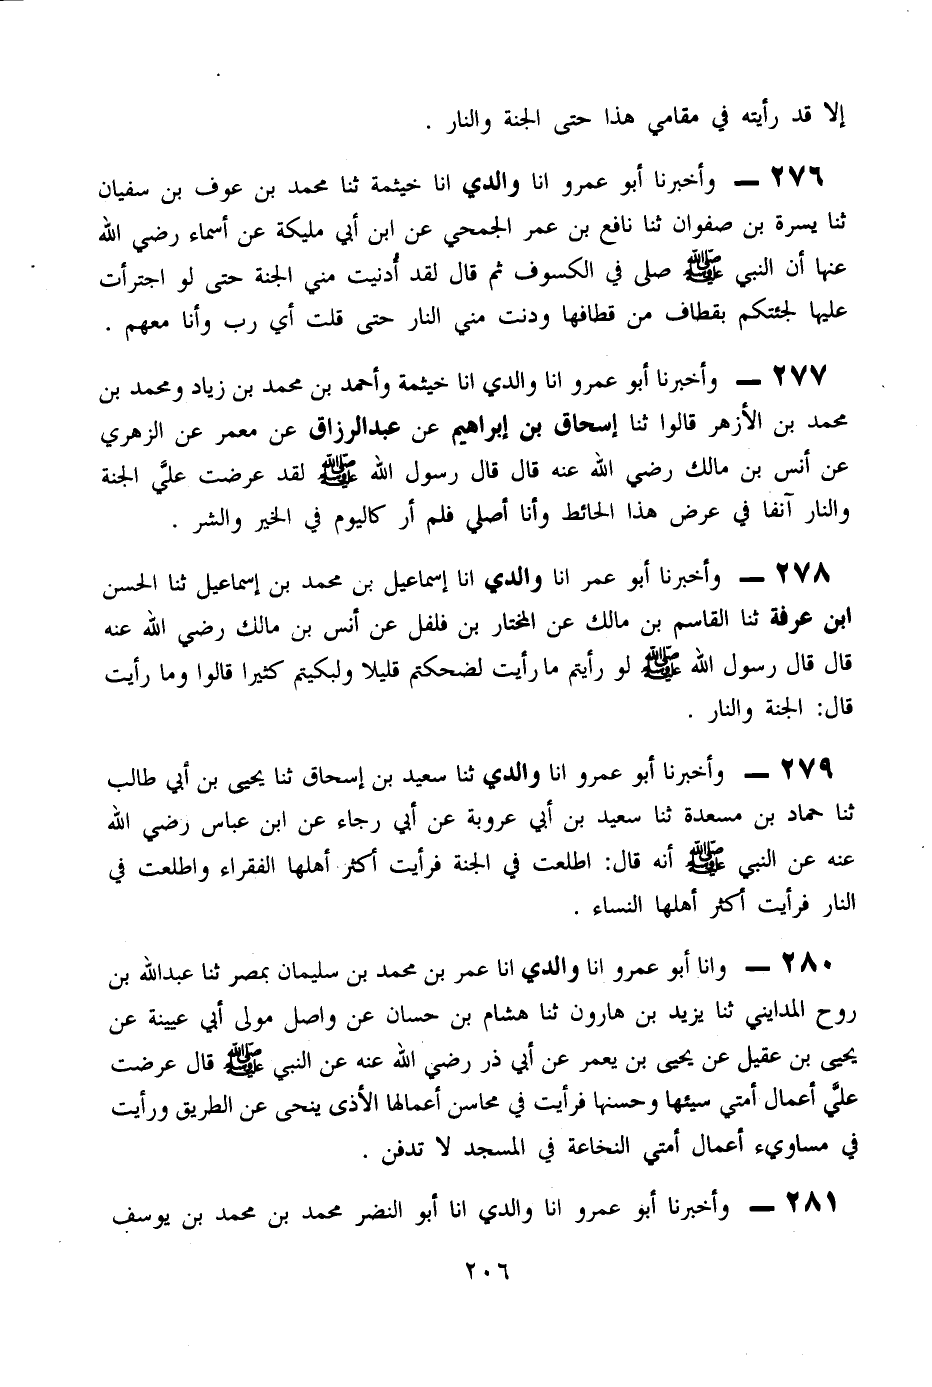 إلا قد رأيته في مقامي هذا حتى الجنة والنار .
٢٧٦ — وأخبرنا أبو عمرو انا والدي انا خيثمة ثنا محمد بن عوف بن سفيان
ثنا يسرة بن صفوان ثنا نافع بن عمر الجمحي عن ابن أبي مليكة عن أسماء رضي الله
عنها أن النبي ﷺ صلى في الكسوف ثم قال لقد أُدنيت مني الجنة حتى لو اجترأت
عليها لجئتكم بقطاف من قطافها ودنت مني النار حتى قلت أي رب وأنا معهم .
٢٧٧ — وأخبرنا أبو عمرو انا والدي انا خيثمة وأحمد بن محمد بن زياد ومحمد بن
محمد بن الأزهر قالوا ثنا إسحاق بن إبراهيم عن عبدالرزاق عن معمر عن الزهري
عن أنس بن مالك رضي الله عنه قال قال رسول الله ﷺ لقد عرضت عليَّ الجنة
والنار آنفا في عرض هذا الحائط وأنا أصلي فلم أر كاليوم في الخير والشر .
٢٧٨ — وأخبرنا أبو عمر انا والدي انا إسماعيل بن محمد بن إسماعيل ثنا الحسن
ابن عرفة ثنا القاسم بن مالك عن المختار بن فلفل عن أنس بن مالك رضي الله عنه
قال قال رسول الله ﷺ لو رأيتم ما رأيت لضحكتم قليلا ولبكيتم كثيرا قالوا وما رأيت
قال: الجنة والنار .
٢٧٩ — وأخبرنا أبو عمرو انا والدي ثنا سعيد بن إسحاق ثنا يحيى بن أبي طالب
ثنا حماد بن مسعدة ثنا سعيد بن أبي عروبة عن أبي رجاء عن ابن عباس رضي الله
عنه عن النبي ﷺ أنه قال: اطلعت في الجنة فرأيت أكثر أهلها الفقراء واطلعت في
النار فرأيت أكثر أهلها النساء .
٢٨٠ — وانا أبو عمرو انا والدي انا عمر بن محمد بن سليمان بمصر ثنا عبدالله بن
روح المدايني ثنا يزيد بن هارون ثنا هشام بن حسان عن واصل مولى أبي عيينة عن
يحيى بن عقيل عن يحيى بن يعمر عن أبي ذر رضي الله عنه عن النبي ﷺ قال عرضت
عليَّ أعمال أمتي سيئها وحسنها فرأيت في محاسن أعمالها الأذى ينحى عن الطريق ورأيت
في مساويء أعمال أمتي النخاعة في المسجد لا تدفن .
٢٨١ — وأخبرنا أبو عمرو انا والدي انا أبو النضر محمد بن محمد بن يوسف
٢٠٦